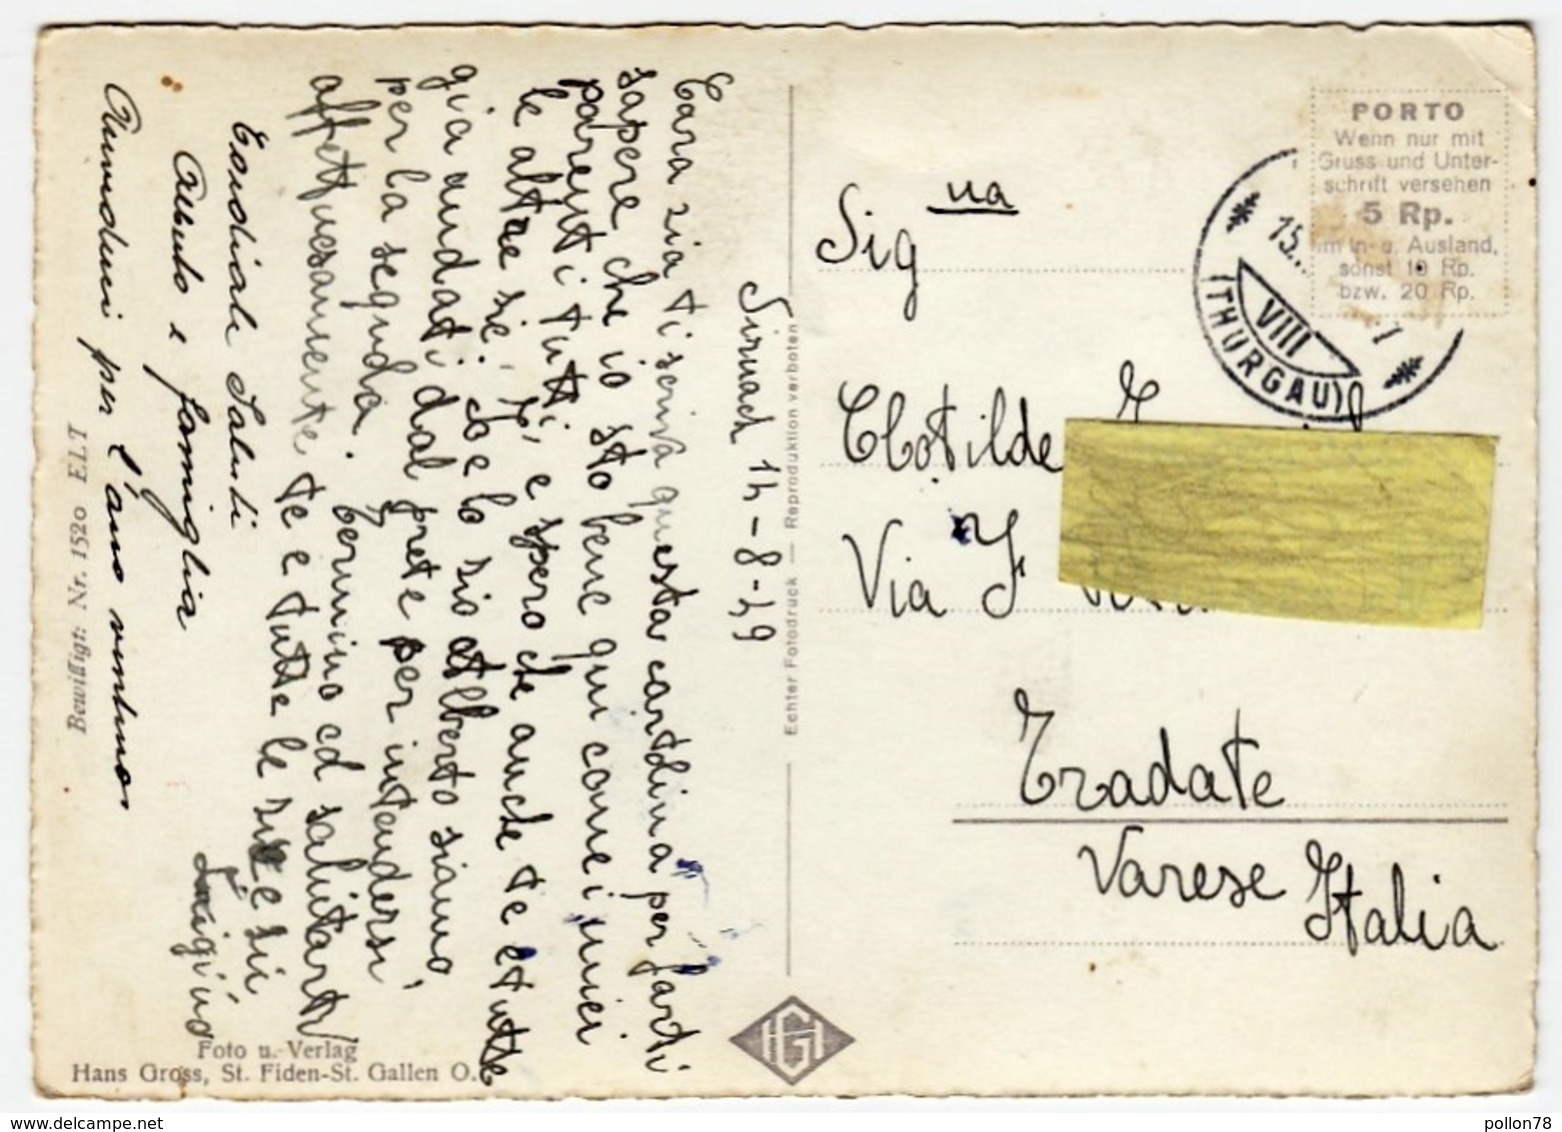 Sirnach 14-8-49
Cara zia ti scriva questa cartolina per farti
sapere che io sto bene qui come i miei
parenti tutti, e spero che anche te e tutte
le altre sie. Io e lo zio Alberto siamo
gia andati dal prete per intendersi
per la seguda. Termino col salutarti
affettuosamente te e tutte le sue e sii
Cordiali Saluti
e famiglia
per l'ano
Luigino
Sig na
Clotilde
Via F
Tradate
Varese Italia
PORTO
Wenn nur mit
Gruss und Unter-
schrift versehen
5 Rp.
im In- u. Ausland,
sonst 10 Rp.
bzw. 20 Rp.
15.
VIII
(THURGAU)
Echter Fotodruck — Reproduktion verboten
Bewilligt: Nr. 1520 ELT
Foto u. Verlag
Hans Gross, St. Fiden-St. Gallen O.
HG
pollon78